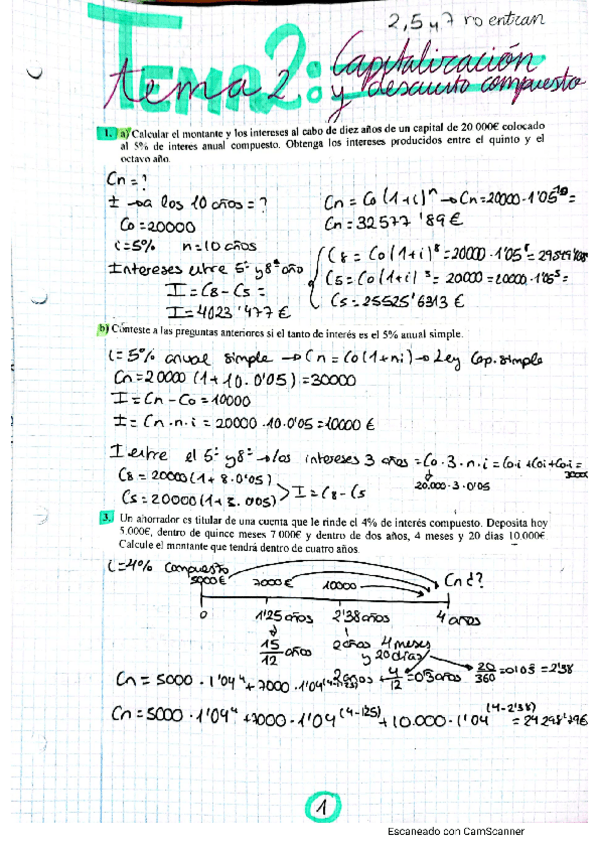 2,5 y 7 no entran
TEMA 2:
tema 2: Capitalización
y descuento compuesto
1. a) Calcular el montante y los intereses al cabo de diez años de un capital de 20 000€ colocado
al 5% de interés anual compuesto. Obtenga los intereses producidos entre el quinto y el
octavo año.
Cn = ?
I → a los 10 años = ?
Co = 20000
i = 5% n = 10 años
Cn = Co (1+i)ⁿ → Cn = 20000 · 1'05¹⁰ =
Cn = 32577'89 €
Intereses entre 5º y 8º año
I = C8 - C5 =
I = 4023'477 €
C8 = Co (1+i)⁸ = 20000 · 1'05⁸ =
C5 = Co (1+i)⁵ = 20000 = 20000 · 1'05⁵ =
C5 = 25525'6313 €
b) Conteste a las preguntas anteriores si el tanto de interés es el 5% anual simple.
i = 5% anual simple → Cn = Co (1+ni) → Ley Cap. simple
Cn = 20000 (1 + 10 · 0'05) = 30000
I = Cn - Co = 10000
I = Cn · n · i = 20000 · 10 · 0'05 = 10000 €
I entre el 5º y 8º → los intereses 3 años = Co · 3 · n · i = Co·i + Coi + Co·i =
3000
20.000 · 3 · 0'05
C8 = 20000 (1 + 8 · 0'05)
C5 = 20000 (1 + 3 · 0'05) > I = C8 - C5
3. Un ahorrador es titular de una cuenta que le rinde el 4% de interés compuesto. Deposita hoy
5.000€, dentro de quince meses 7 000€ y dentro de dos años, 4 meses y 20 días 10.000€.
Calcule el montante que tendrá dentro de cuatro años.
i = 4% compuesto
5000€ 7000€ 10000 Cn ¿?
0 1'25 años 2'38 años 4 años
15/12 años
2 años 4 meses
y 20 días
2 años + 4/12 = 0'3 años 20/360 = 2'38
Cn = 5000 · 1'04⁴ + 7000 · 1'04
Cn = 5000 · 1'04⁴ + 7000 · 1'04^(4-1'25) + 10.000 · 1'04^(4-2'38) = 24298'796
1
Escaneado con CamScanner